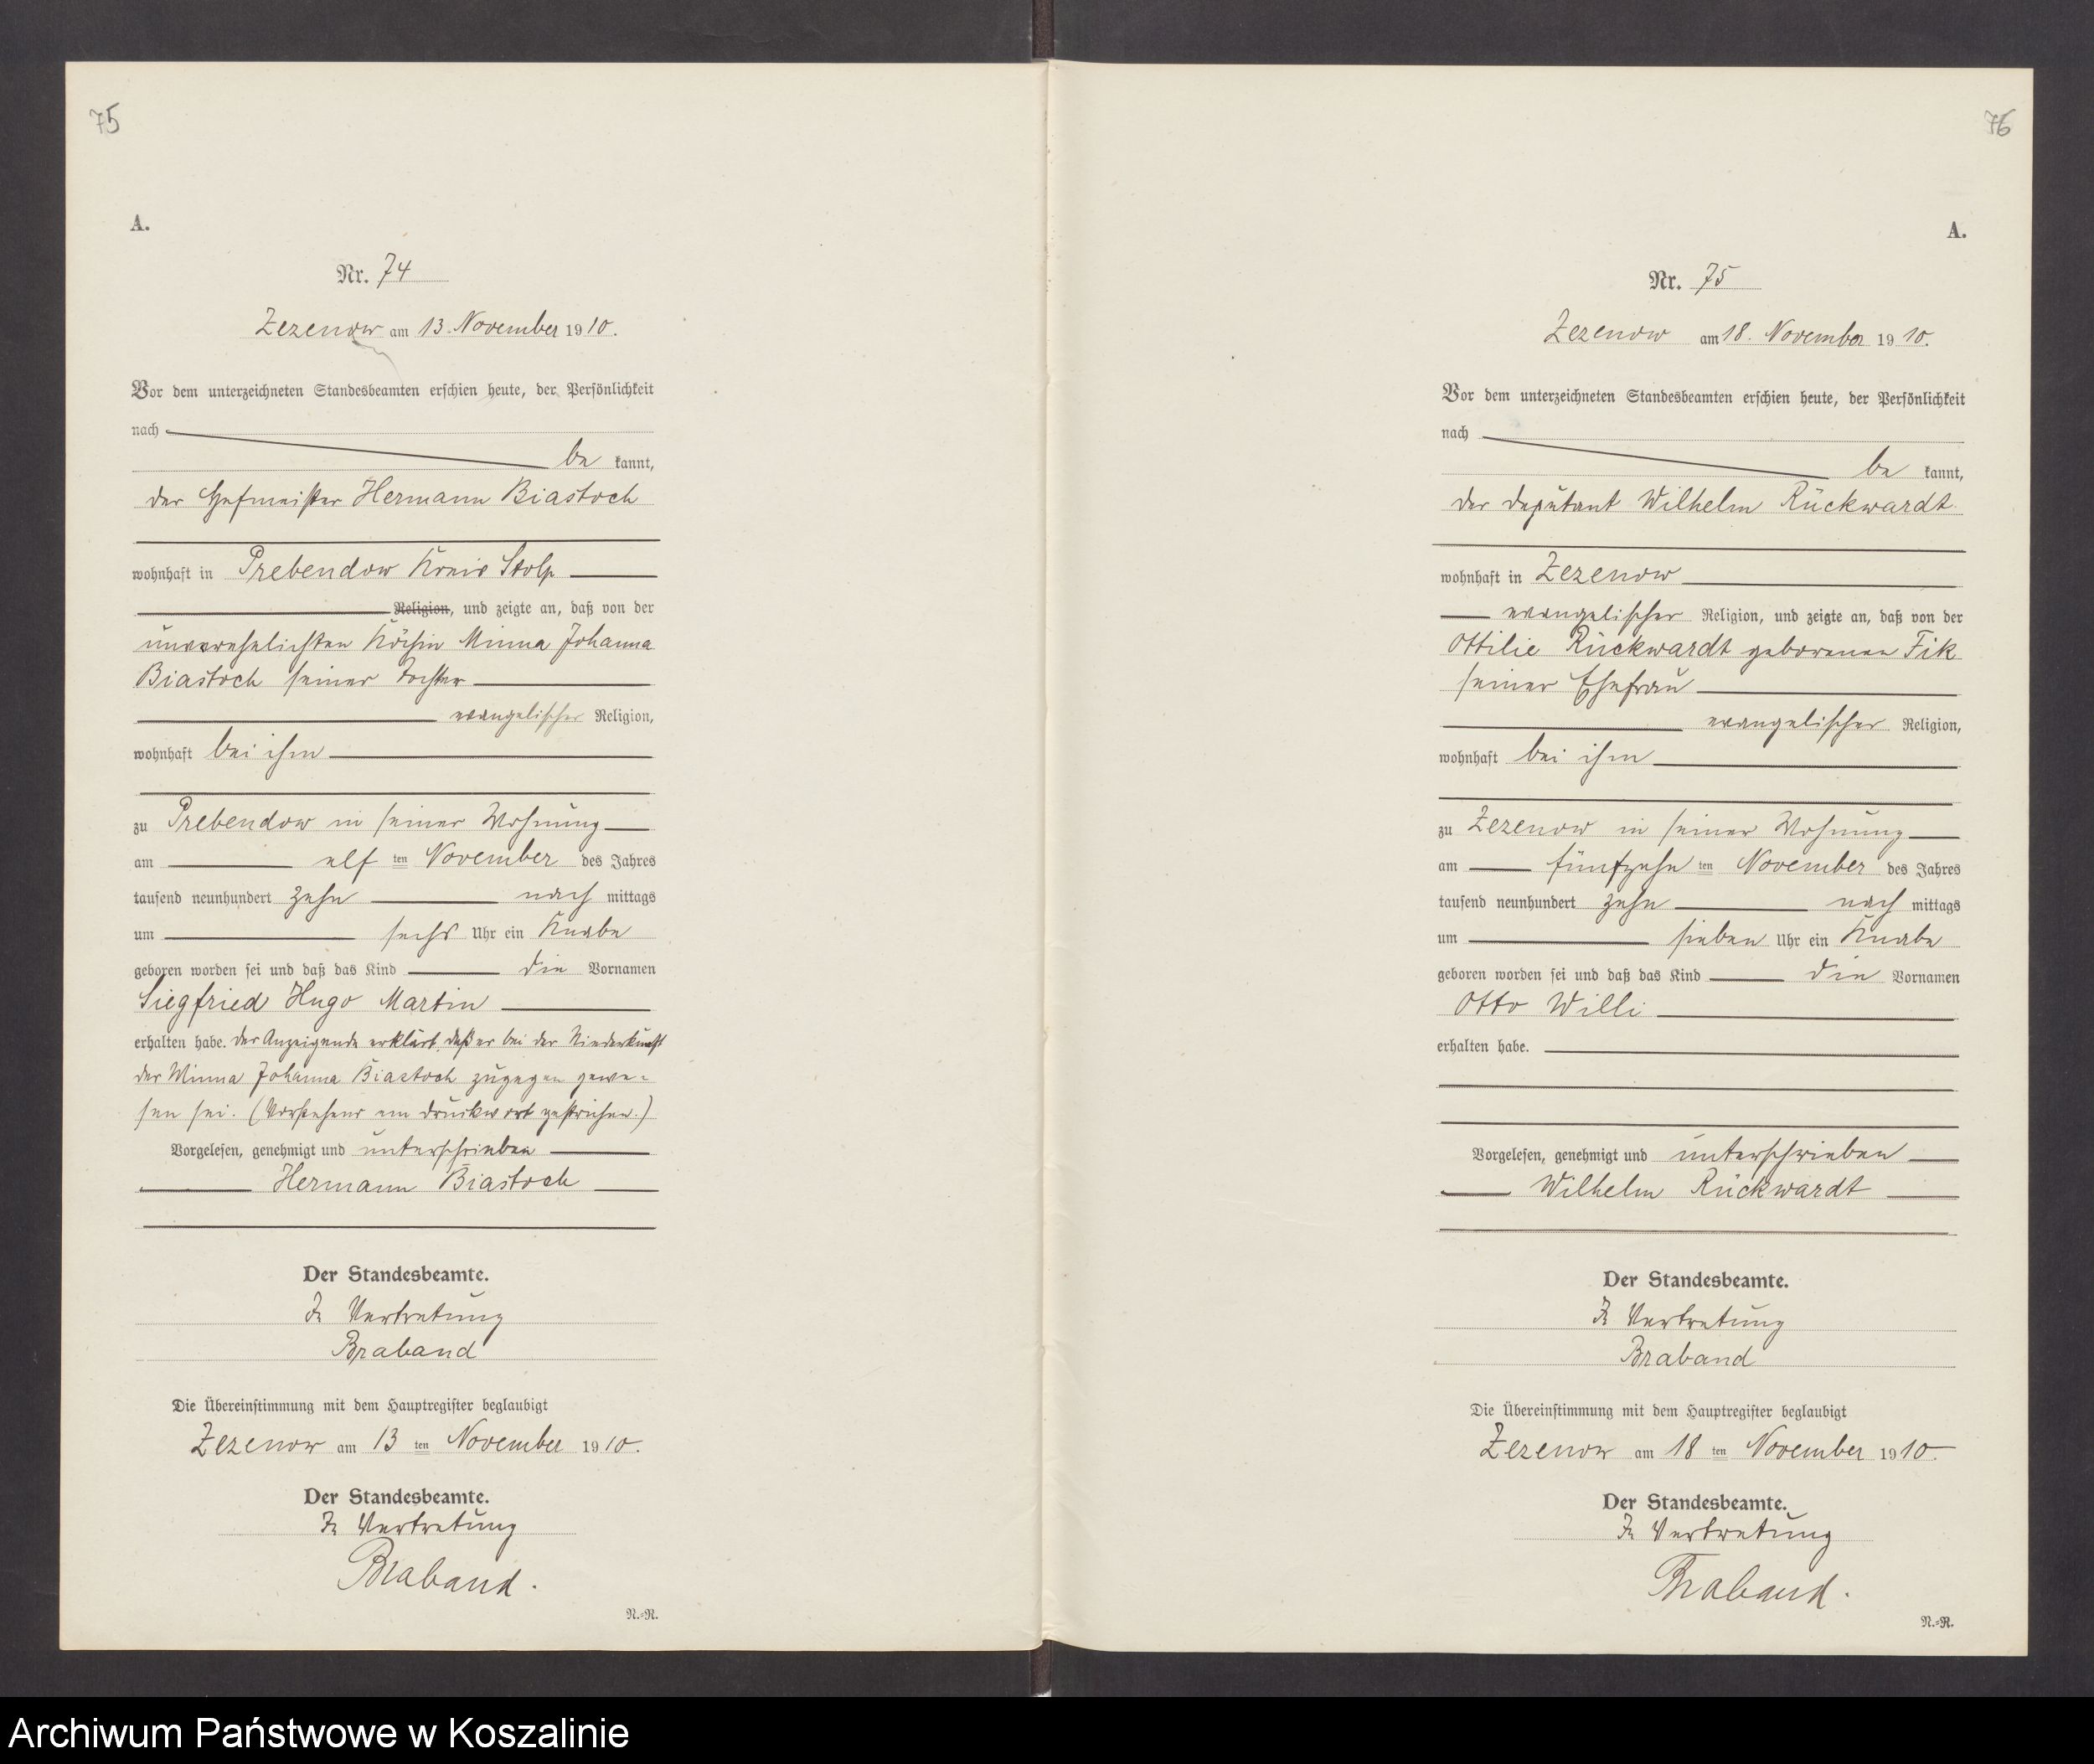 75
A.
Nr. 74
Zezenow am 13. November 1910.
Vor dem unterzeichneten Standesbeamten erschien heute, der Persönlichkeit
nach
be kannt,
der Hofmeister Hermann Biastoch
wohnhaft in Prebendow Kreis Stolp
Religion, und zeigte an, daß von der
unverehelichten Köchin Minna Johanna
Biastoch seiner Tochter
evangelischer Religion,
wohnhaft bei ihm
zu Prebendow in seiner Wohnung
am elf ten November des Jahres
tausend neunhundert zehn nach mittags
um sechs Uhr ein Knabe
geboren worden sei und daß das Kind die Vornamen
Siegfried Hugo Martin
erhalten habe. Der Anzeigende erklärt, daß er bei der Niederkunft
der Minna Johanna Biastoch zugegen gewe-
sen sei. (Vorstehend ein Druckwort gestrichen.)
Vorgelesen, genehmigt und unterschrieben
Hermann Biastoch
Der Standesbeamte.
In Vertretung
Braband
Die Übereinstimmung mit dem Hauptregister beglaubigt
Zezenow am 13 ten November 1910.
Der Standesbeamte.
In Vertretung
Braband.
N.-R.
76
A.
Nr. 75
Zezenow am 18. November 1910.
Vor dem unterzeichneten Standesbeamten erschien heute, der Persönlichkeit
nach
be kannt,
der Deputant Wilhelm Rückwardt
wohnhaft in Zezenow
evangelischer Religion, und zeigte an, daß von der
Ottilie Rückwardt geborenen Fik
seiner Ehefrau
evangelischer Religion,
wohnhaft bei ihm
zu Zezenow in seiner Wohnung
am fünfzehn ten November des Jahres
tausend neunhundert zehn nach mittags
um sieben Uhr ein Knabe
geboren worden sei und daß das Kind die Vornamen
Otto Willi
erhalten habe.
Vorgelesen, genehmigt und unterschrieben
Wilhelm Rückwardt
Der Standesbeamte.
In Vertretung
Braband
Die Übereinstimmung mit dem Hauptregister beglaubigt
Zezenow am 18 ten November 1910.
Der Standesbeamte.
In Vertretung
Braband.
N.-R.
Archiwum Państwowe w Koszalinie